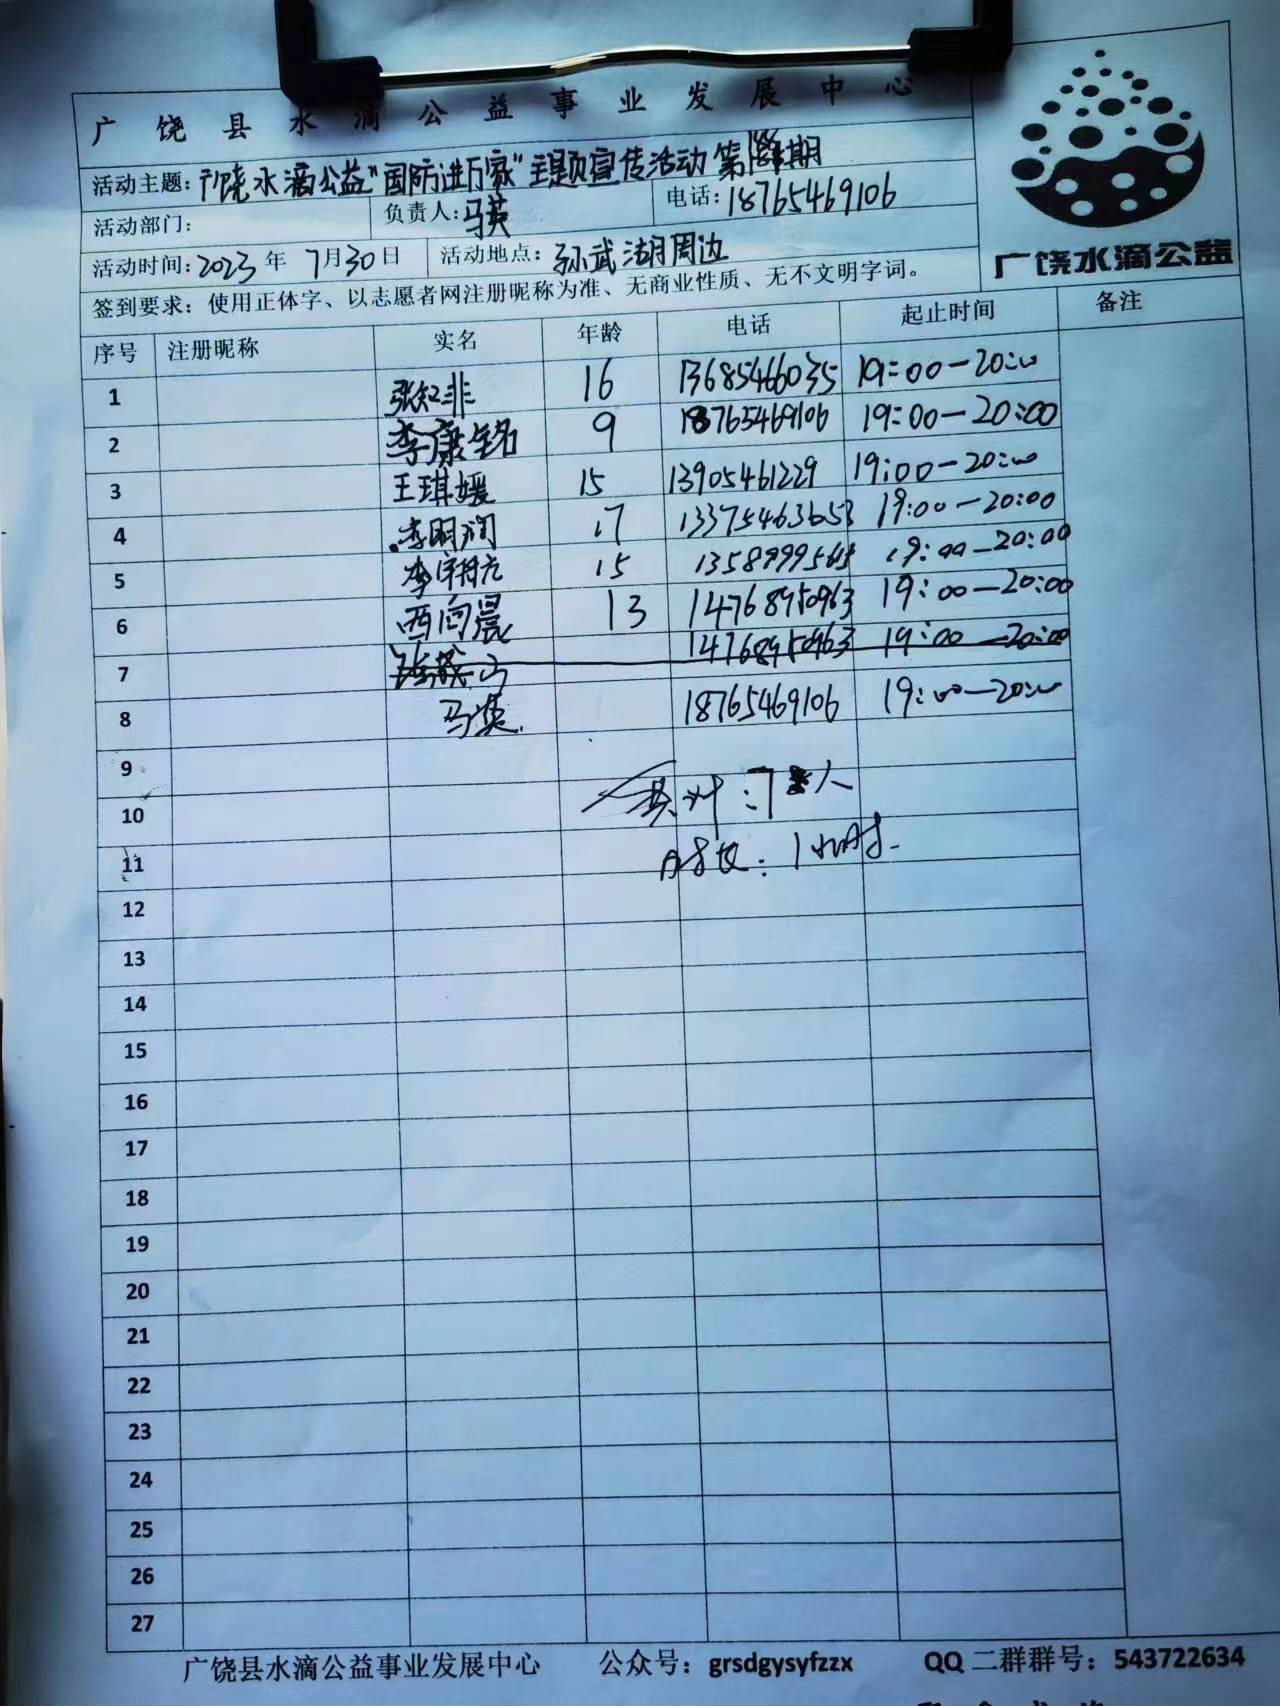 广饶县水滴公益事业发展中心
活动主题：广饶水滴公益"国防进万家"主题宣传活动 第 期
活动部门： 负责人：马英 电话：18765469106
活动时间：2023年 7月30日 活动地点：孙武湖周边
广饶水滴公益
签到要求：使用正体字、以志愿者网注册昵称为准、无商业性质、无不文明字词。
序号 注册昵称 实名 年龄 电话 起止时间 备注
1 张知非 16 13685466035 19:00-20:00
2 李康铭 9 18765469106 19:00-20:00
3 王琪媛 15 13905461229 19:00-20:00
4 李明润 17 13375463653 19:00-20:00
5 李 15 19:00-20:00
6 西向晨 13 14768950963 19:00-20:00
7 14768950963 19:00-20:00
8 马英 18765469106 19:00-20:00
9
10 共计：7人
11 时长：1小时.
12
13
14
15
16
17
18
19
20
21
22
23
24
25
26
27
广饶县水滴公益事业发展中心 公众号：grsdgysyfzzx QQ 二群群号：543722634